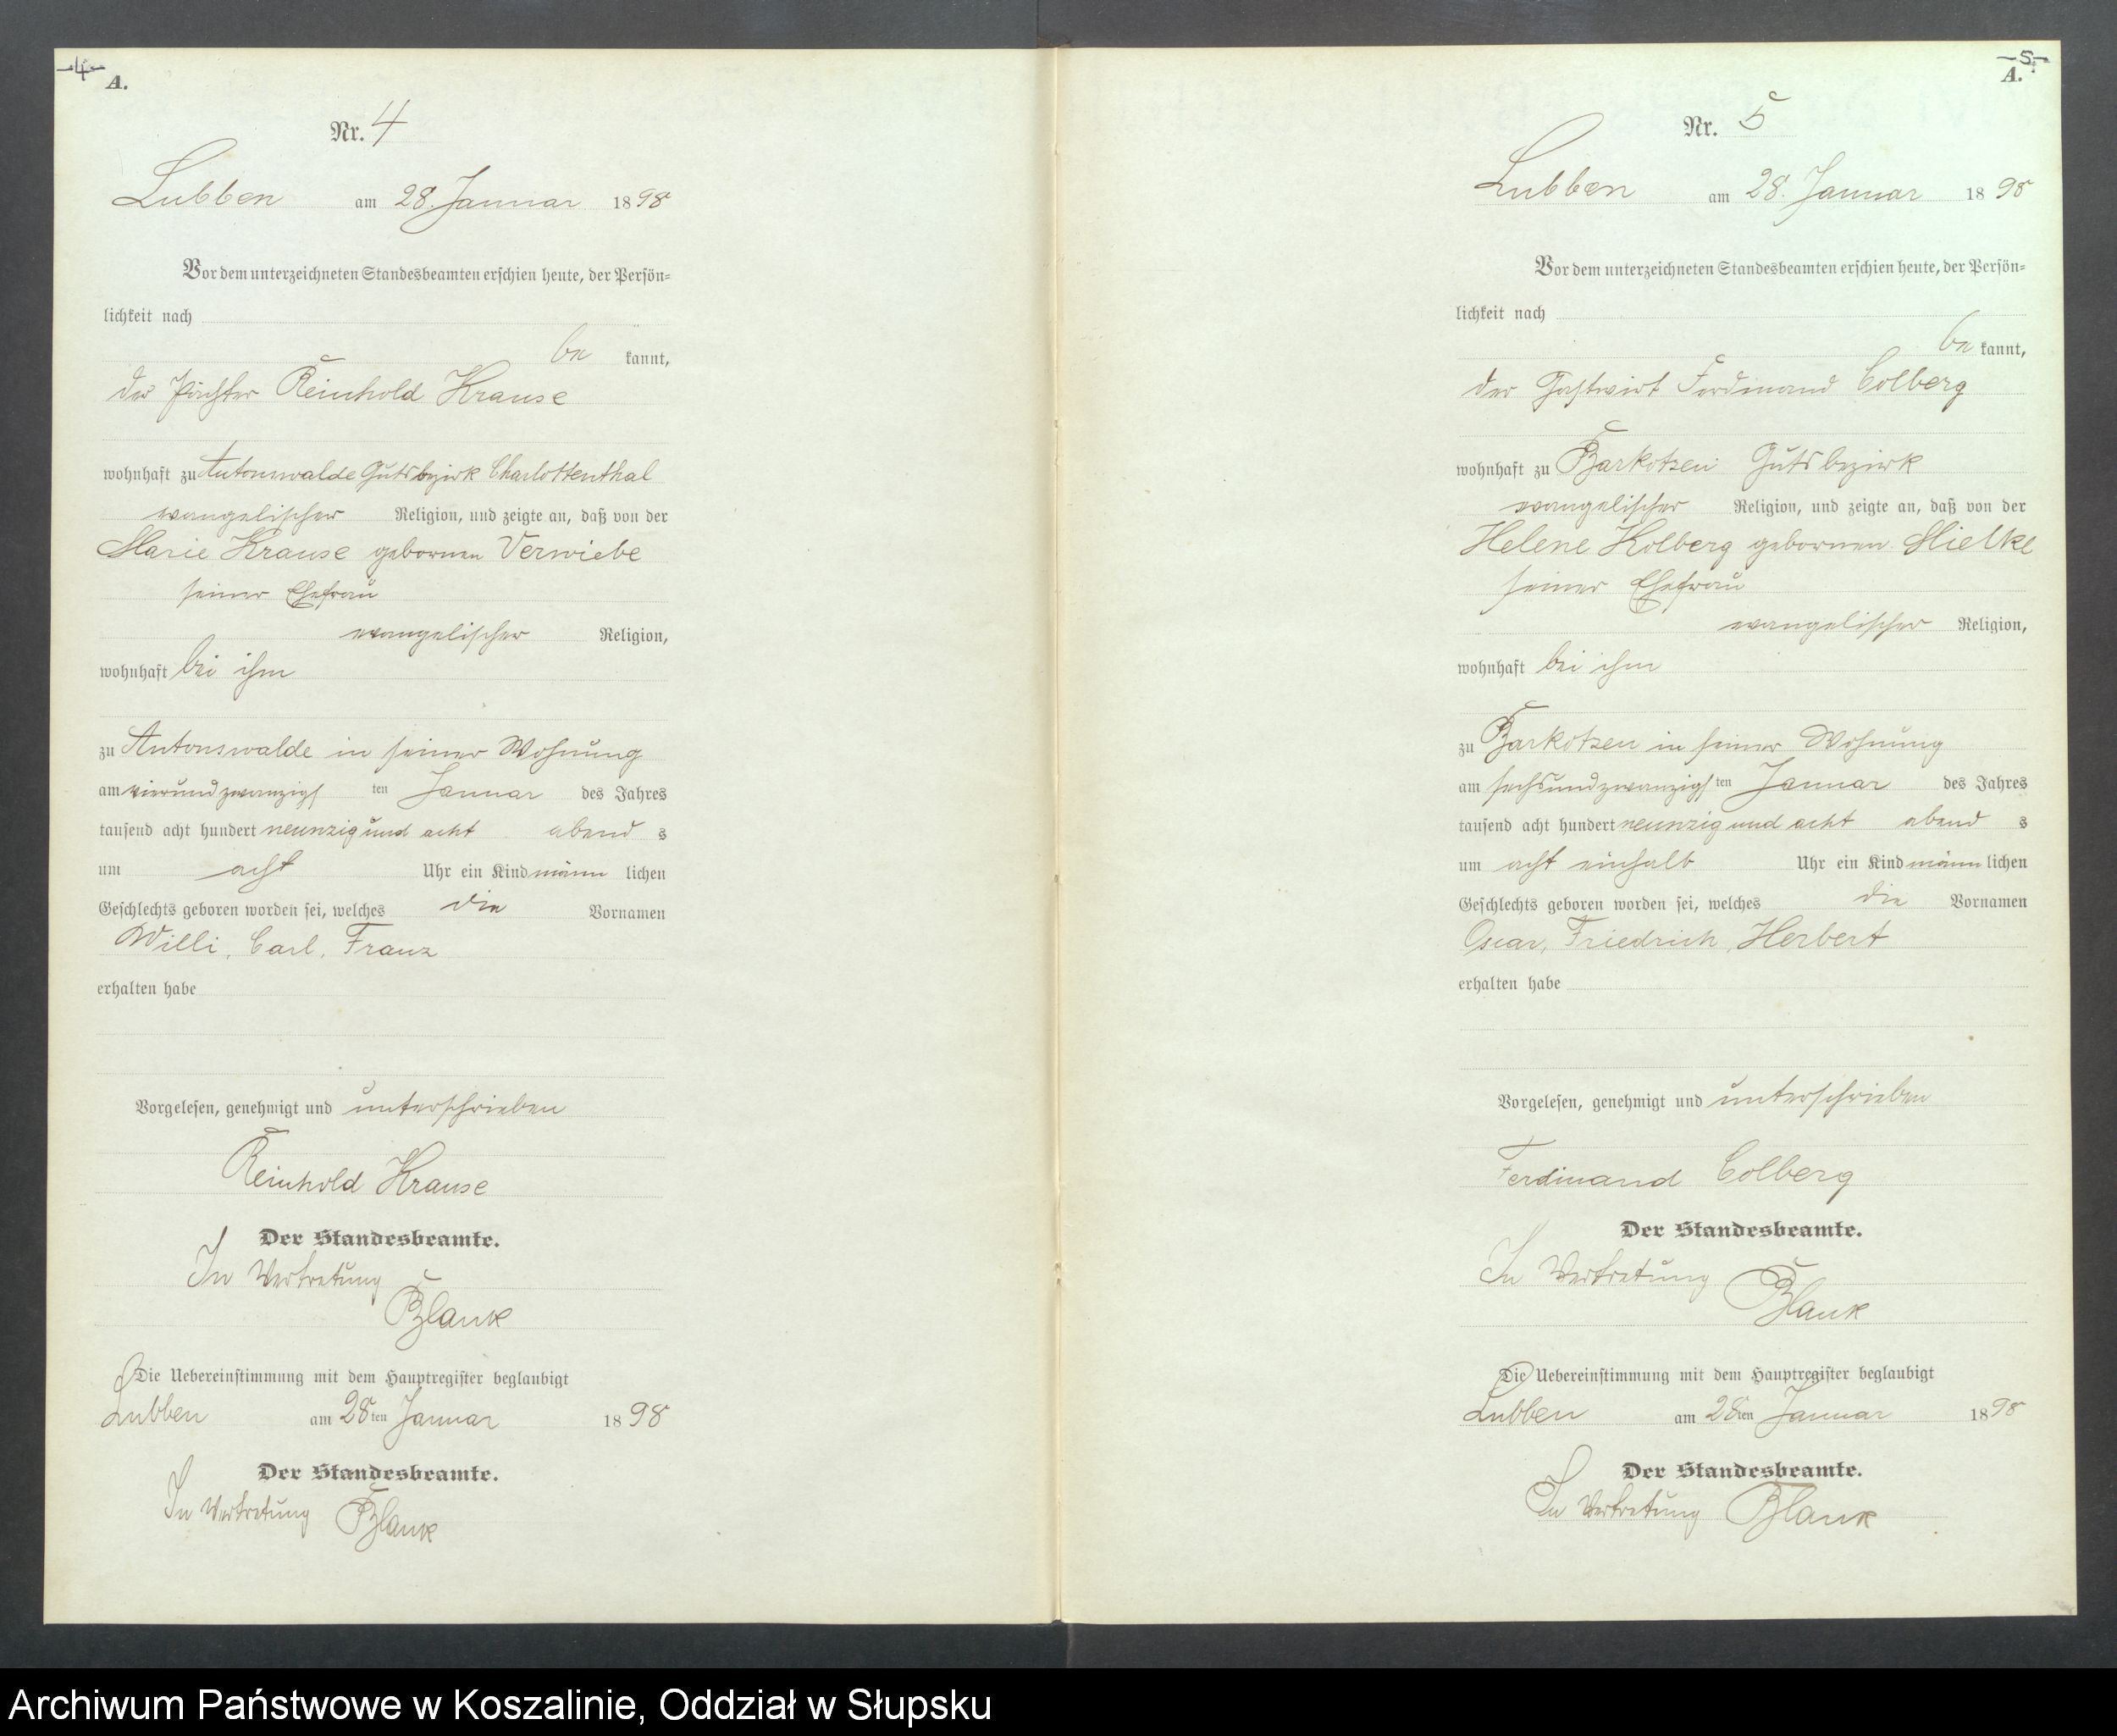 -4-
A.
Nr. 4
Lubben am 28. Januar 1898
Vor dem unterzeichneten Standesbeamten erschien heute, der Persön=
lichkeit nach
be kannt,
der Pächter Reinhold Krause
wohnhaft zu Antonswalde Gutsbezirk Charlottenthal
evangelischer Religion, und zeigte an, daß von der
Marie Krause gebornen Verwiebe
seiner Ehefrau
evangelischer Religion,
wohnhaft bei ihm
zu Antonswalde in seiner Wohnung
am vierundzwanzigs ten Januar des Jahres
tausend acht hundert neunzig und acht abend s
um acht Uhr ein Kind männ lichen
Geschlechts geboren worden sei, welches die Vornamen
Willi, Carl, Franz
erhalten habe
Vorgelesen, genehmigt und unterschrieben
Reinhold Krause
Der Standesbeamte.
In Vertretung
Blank
Die Uebereinstimmung mit dem Hauptregister beglaubigt
Lubben am 28ten Januar 1898
Der Standesbeamte.
In Vertretung Blank
-5-
A.
Nr. 5
Lubben am 28. Januar 1898
Vor dem unterzeichneten Standesbeamten erschien heute, der Persön=
lichkeit nach
be kannt,
der Gastwirt Ferdinand Colberg
wohnhaft zu Barkotzen Gutsbezirk
evangelischer Religion, und zeigte an, daß von der
Helene Kolberg gebornen Mielke
seiner Ehefrau
evangelischer Religion,
wohnhaft bei ihm
zu Barkotzen in seiner Wohnung
am sechsundzwanzigs ten Januar des Jahres
tausend acht hundert neunzig und acht abend s
um acht einhalb Uhr ein Kind männ lichen
Geschlechts geboren worden sei, welches die Vornamen
Oscar, Friedrich, Herbert
erhalten habe
Vorgelesen, genehmigt und unterschrieben
Ferdinand Colberg
Der Standesbeamte.
In Vertretung
Blank
Die Uebereinstimmung mit dem Hauptregister beglaubigt
Lubben am 28ten Januar 1898
Der Standesbeamte.
In Vertretung Blank
Archiwum Państwowe w Koszalinie, Oddział w Słupsku